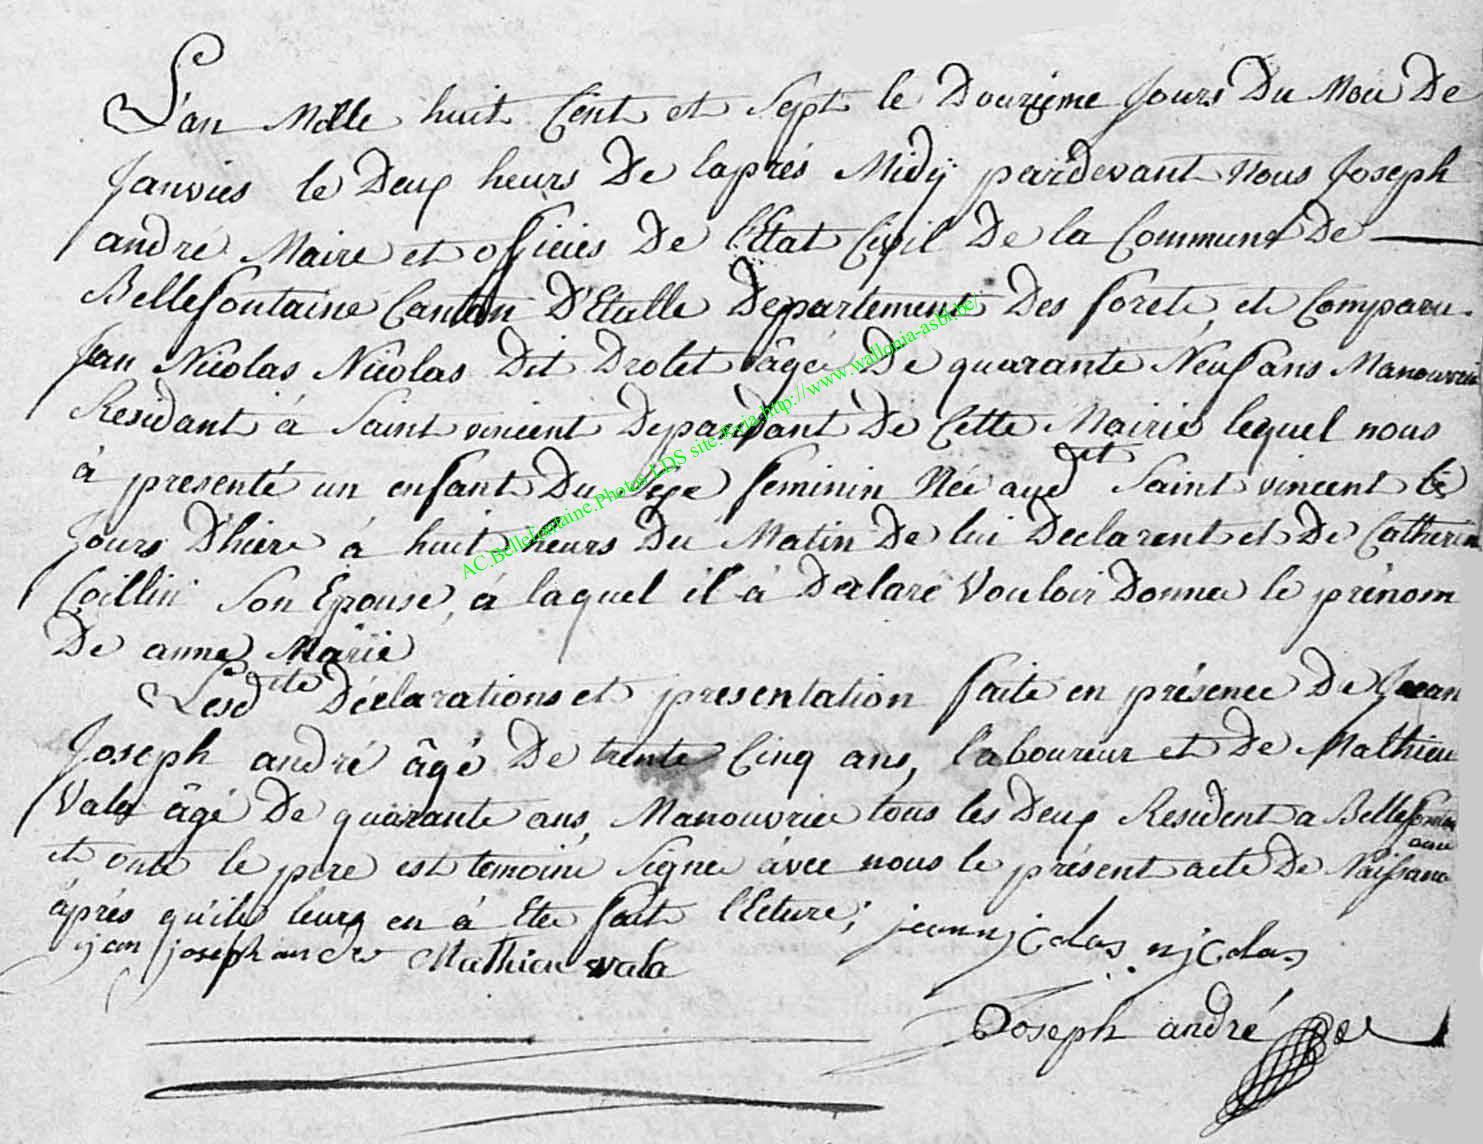 L'an Mille huit Cent et Sept le Douzieme Jours Du Moi De
Janvier le Deux heurs De laprés Midÿ pardevant Nous Joseph
andré Maire et officier De l'Etat Civil De la Commune De
Bellefontaine Canton D'Etalle Departement Des forets, et Comparu
Jean Nicolas Nicolas Dit Drolet âgée De quarante Neuf ans Manouvrie
Residant à Saint vincent Dependant De Cette Mairie lequel nous
à presenté un enfant Du Sexe feminin Née aud dit Saint vincent le
Jours D'hiere à huit heurs Du Matin De lui Declarent et De Catherin
Coillin Son Epouse, à laquel il à Declare Vouloir Donner le prénom
De anne Marie
Lesd ite Déclarations et presentation faite en présence De Jean
Joseph andré âgé De trente Cinq ans, laboureur et de Mathieu
Vala âgé De quarante ans, Manouvrier tous les Deux Resident a Bellefontain
et onte le pere est temoins Signee àvec nous le présent acte De Naissance
àprés qu'ils leurs en à Etee fait lecture; jean njcolas njcolas
jan joseph andre Mathieu vala
Joseph andré
AC.Bellefontaine.Photos LDS site:#via:http://www.wallonia-asbl.be/